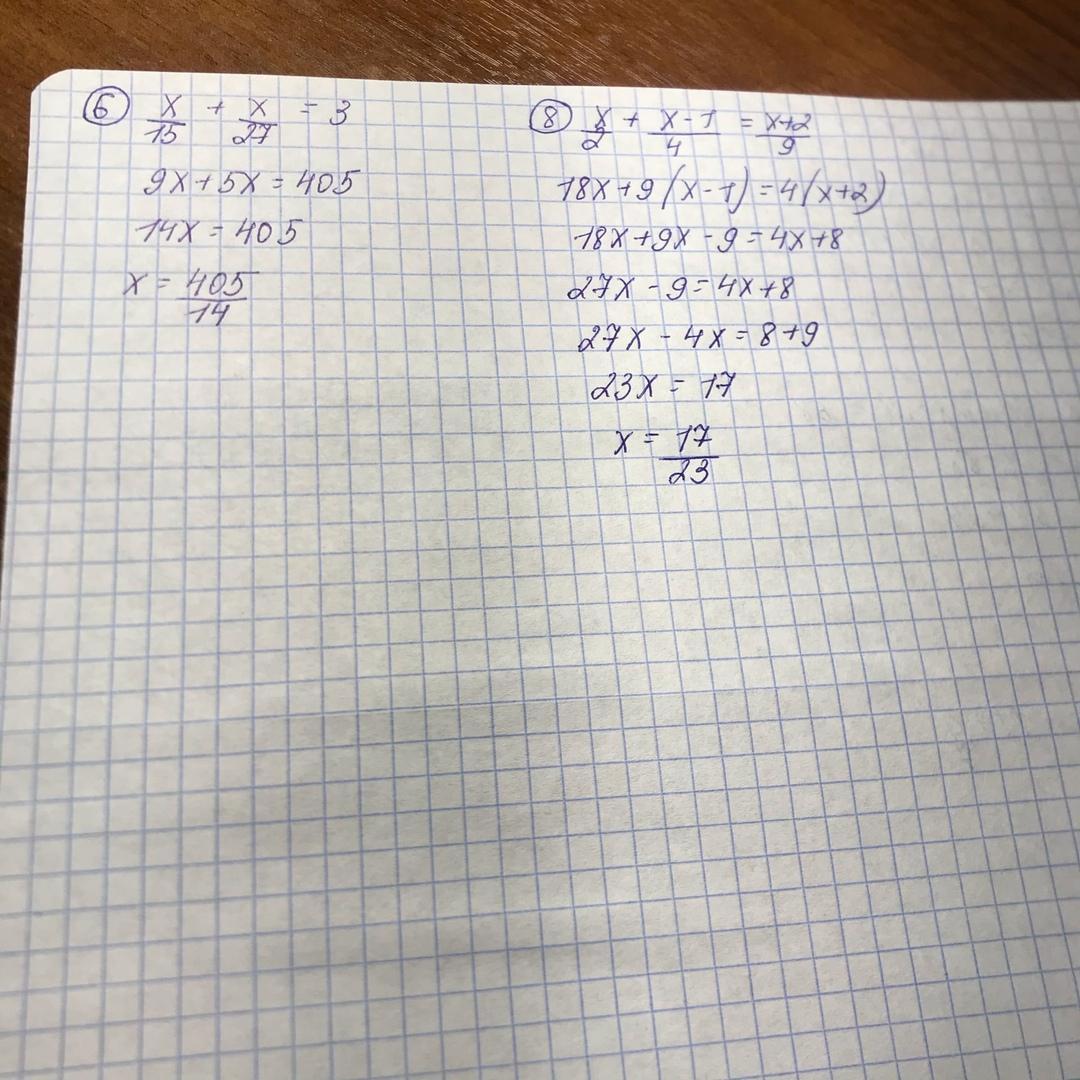 ⑥ x/15 + x/27 = 3
9x+5x=405
14x=405
x = 405/14
⑧ x/2 + x-1/4 = x+2/9
18x+9(x-1)=4(x+2)
18x+9x-9=4x+8
27x-9=4x+8
27x-4x=8+9
23x=17
x = 17/23